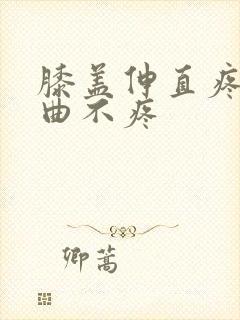 膝盖伸直疼
曲不疼
卿蒿